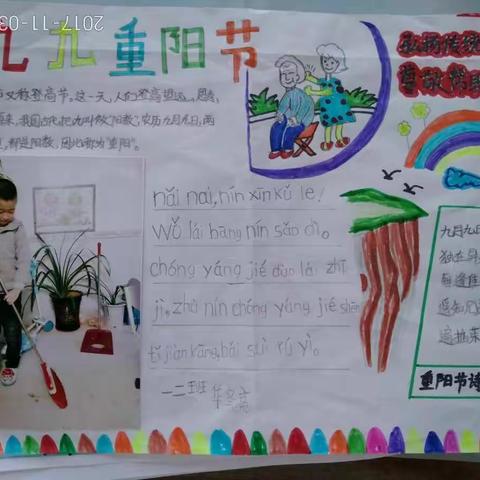 2017-11-03
九九重阳节
弘扬传统
尊敬
又称登高节。这一天，人们登高望远，思
来，我国古代把九叫做"阳数"，农历九月九日，两
都是阳数，因此称为"重阳"。
nǎi nai, nín xīn kǔ le!
Wǒ lái bāng nín sǎo dì。
chóng yáng jié dào lái zhī
jì, zhù nín chóng yáng jié shēn
tǐ jiàn kāng, bǎi suì rú yì。
一二班
九月九
独在异
每逢佳
遥知兄
遍插茱
重阳节诗